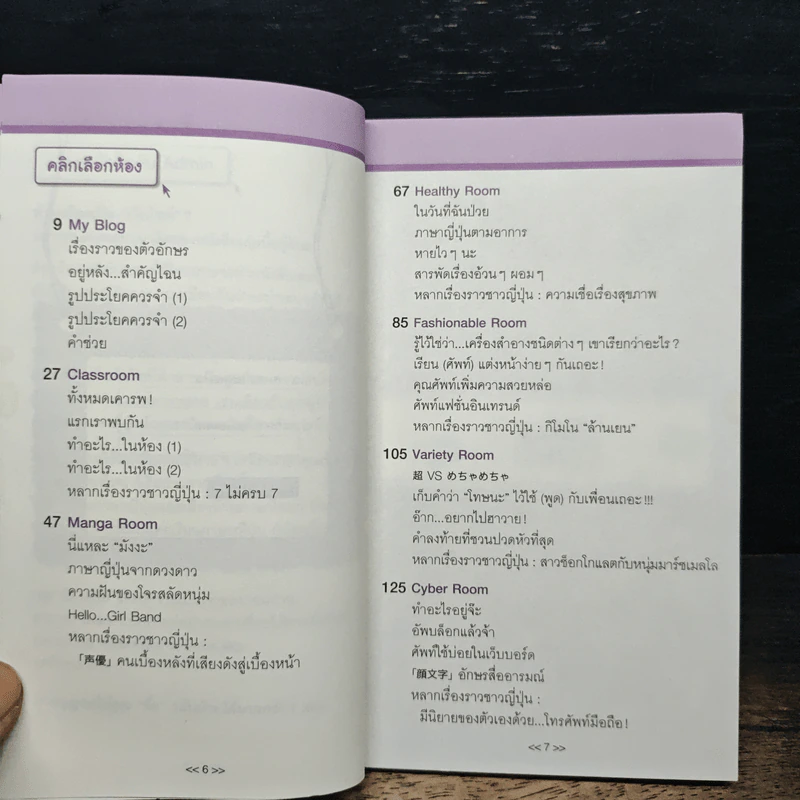 คลิกเลือกห้อง
9 My Blog
เรื่องราวของตัวอักษร
อยู่หลัง...สำคัญไฉน
รูปประโยคควรจำ (1)
รูปประโยคควรจำ (2)
คำช่วย
27 Classroom
ทั้งหมดเคารพ!
แรกเราพบกัน
ทำอะไร...ในห้อง (1)
ทำอะไร...ในห้อง (2)
หลากเรื่องราวชาวญี่ปุ่น : 7 ไม่ครบ 7
47 Manga Room
นี่แหละ “มังงะ”
ภาษาญี่ปุ่นจากดวงดาว
ความฝันของโจรสลัดหนุ่ม
Hello...Girl Band
หลากเรื่องราวชาวญี่ปุ่น :
「声優」คนเบื้องหลังที่เสียงดังสู่เบื้องหน้า
<< 6 >>
67 Healthy Room
ในวันที่ฉันป่วย
ภาษาญี่ปุ่นตามอาการ
หายไว ๆ นะ
สารพัดเรื่องอ้วน ๆ ผอม ๆ
หลากเรื่องราวชาวญี่ปุ่น : ความเชื่อเรื่องสุขภาพ
85 Fashionable Room
รู้ไว้ใช่ว่า...เครื่องสำอางชนิดต่าง ๆ เขาเรียกว่าอะไร ?
เรียน (ศัพท์) แต่งหน้าง่าย ๆ กันเถอะ!
คุณศัพท์เพิ่มความสวยหล่อ
ศัพท์แฟชั่นอินเทรนด์
หลากเรื่องราวชาวญี่ปุ่น : กิโมโน “ล้านเยน”
105 Variety Room
超 VS めちゃめちゃ
เก็บคำว่า “โทษนะ” ไว้ใช้ (พูด) กับเพื่อนเถอะ!!!
อ๊าก...อยากไปฮาวาย!
คำลงท้ายที่ชวนปวดหัวที่สุด
หลากเรื่องราวชาวญี่ปุ่น : สาวช็อกโกแลตกับหนุ่มมาร์ชเมลโล
125 Cyber Room
ทำอะไรอยู่จ๊ะ
อัพบล็อกแล้วจ้า
ศัพท์ใช้บ่อยในเว็บบอร์ด
「顔文字」อักษรสื่ออารมณ์
หลากเรื่องราวชาวญี่ปุ่น :
มีนิยายของตัวเองด้วย...โทรศัพท์มือถือ!
<< 7 >>